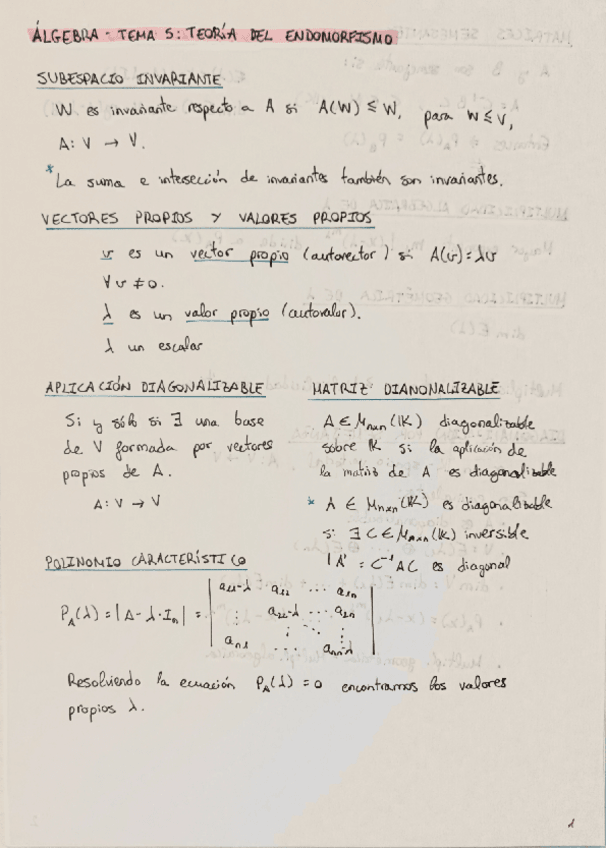 ÁLGEBRA - TEMA 5: TEORÍA DEL ENDOMORFISMO
SUBESPACIO INVARIANTE
W es invariante respecto a A si A(W) ≤ W, para W ≤ V,
A: V → V.
* La suma e intersección de invariantes también son invariantes.
VECTORES PROPIOS Y VALORES PROPIOS
v es un vector propio (autovector) si A(v) = λv
∀v ≠ 0.
λ es un valor propio (autovalor).
λ un escalar
APLICACIÓN DIAGONALIZABLE
Si y sólo si ∃ una base
de V formada por vectores
propios de A.
A: V → V
MATRIZ DIANONALIZABLE
A ∈ Mnxn(K) diagonalizable
sobre K si la aplicación de
la matriz de A es diagonalizable
* A ∈ Mnxn(K) es diagonalizable
si ∃ C ∈ Mnxn(K) inversible
| A' = C⁻¹AC es diagonal
POLINOMIO CARACTERÍSTICO
a₁₁-λ a₁₂ ... a₁ₙ
P_A(λ) = |A - λ·Iₙ| = ⋮ a₂₂-λ ... a₂ₙ
aₙ₁ ... aₙₙ-λ
Resolviendo la ecuación P_A(λ) = 0 encontramos los valores
propios λ.
1